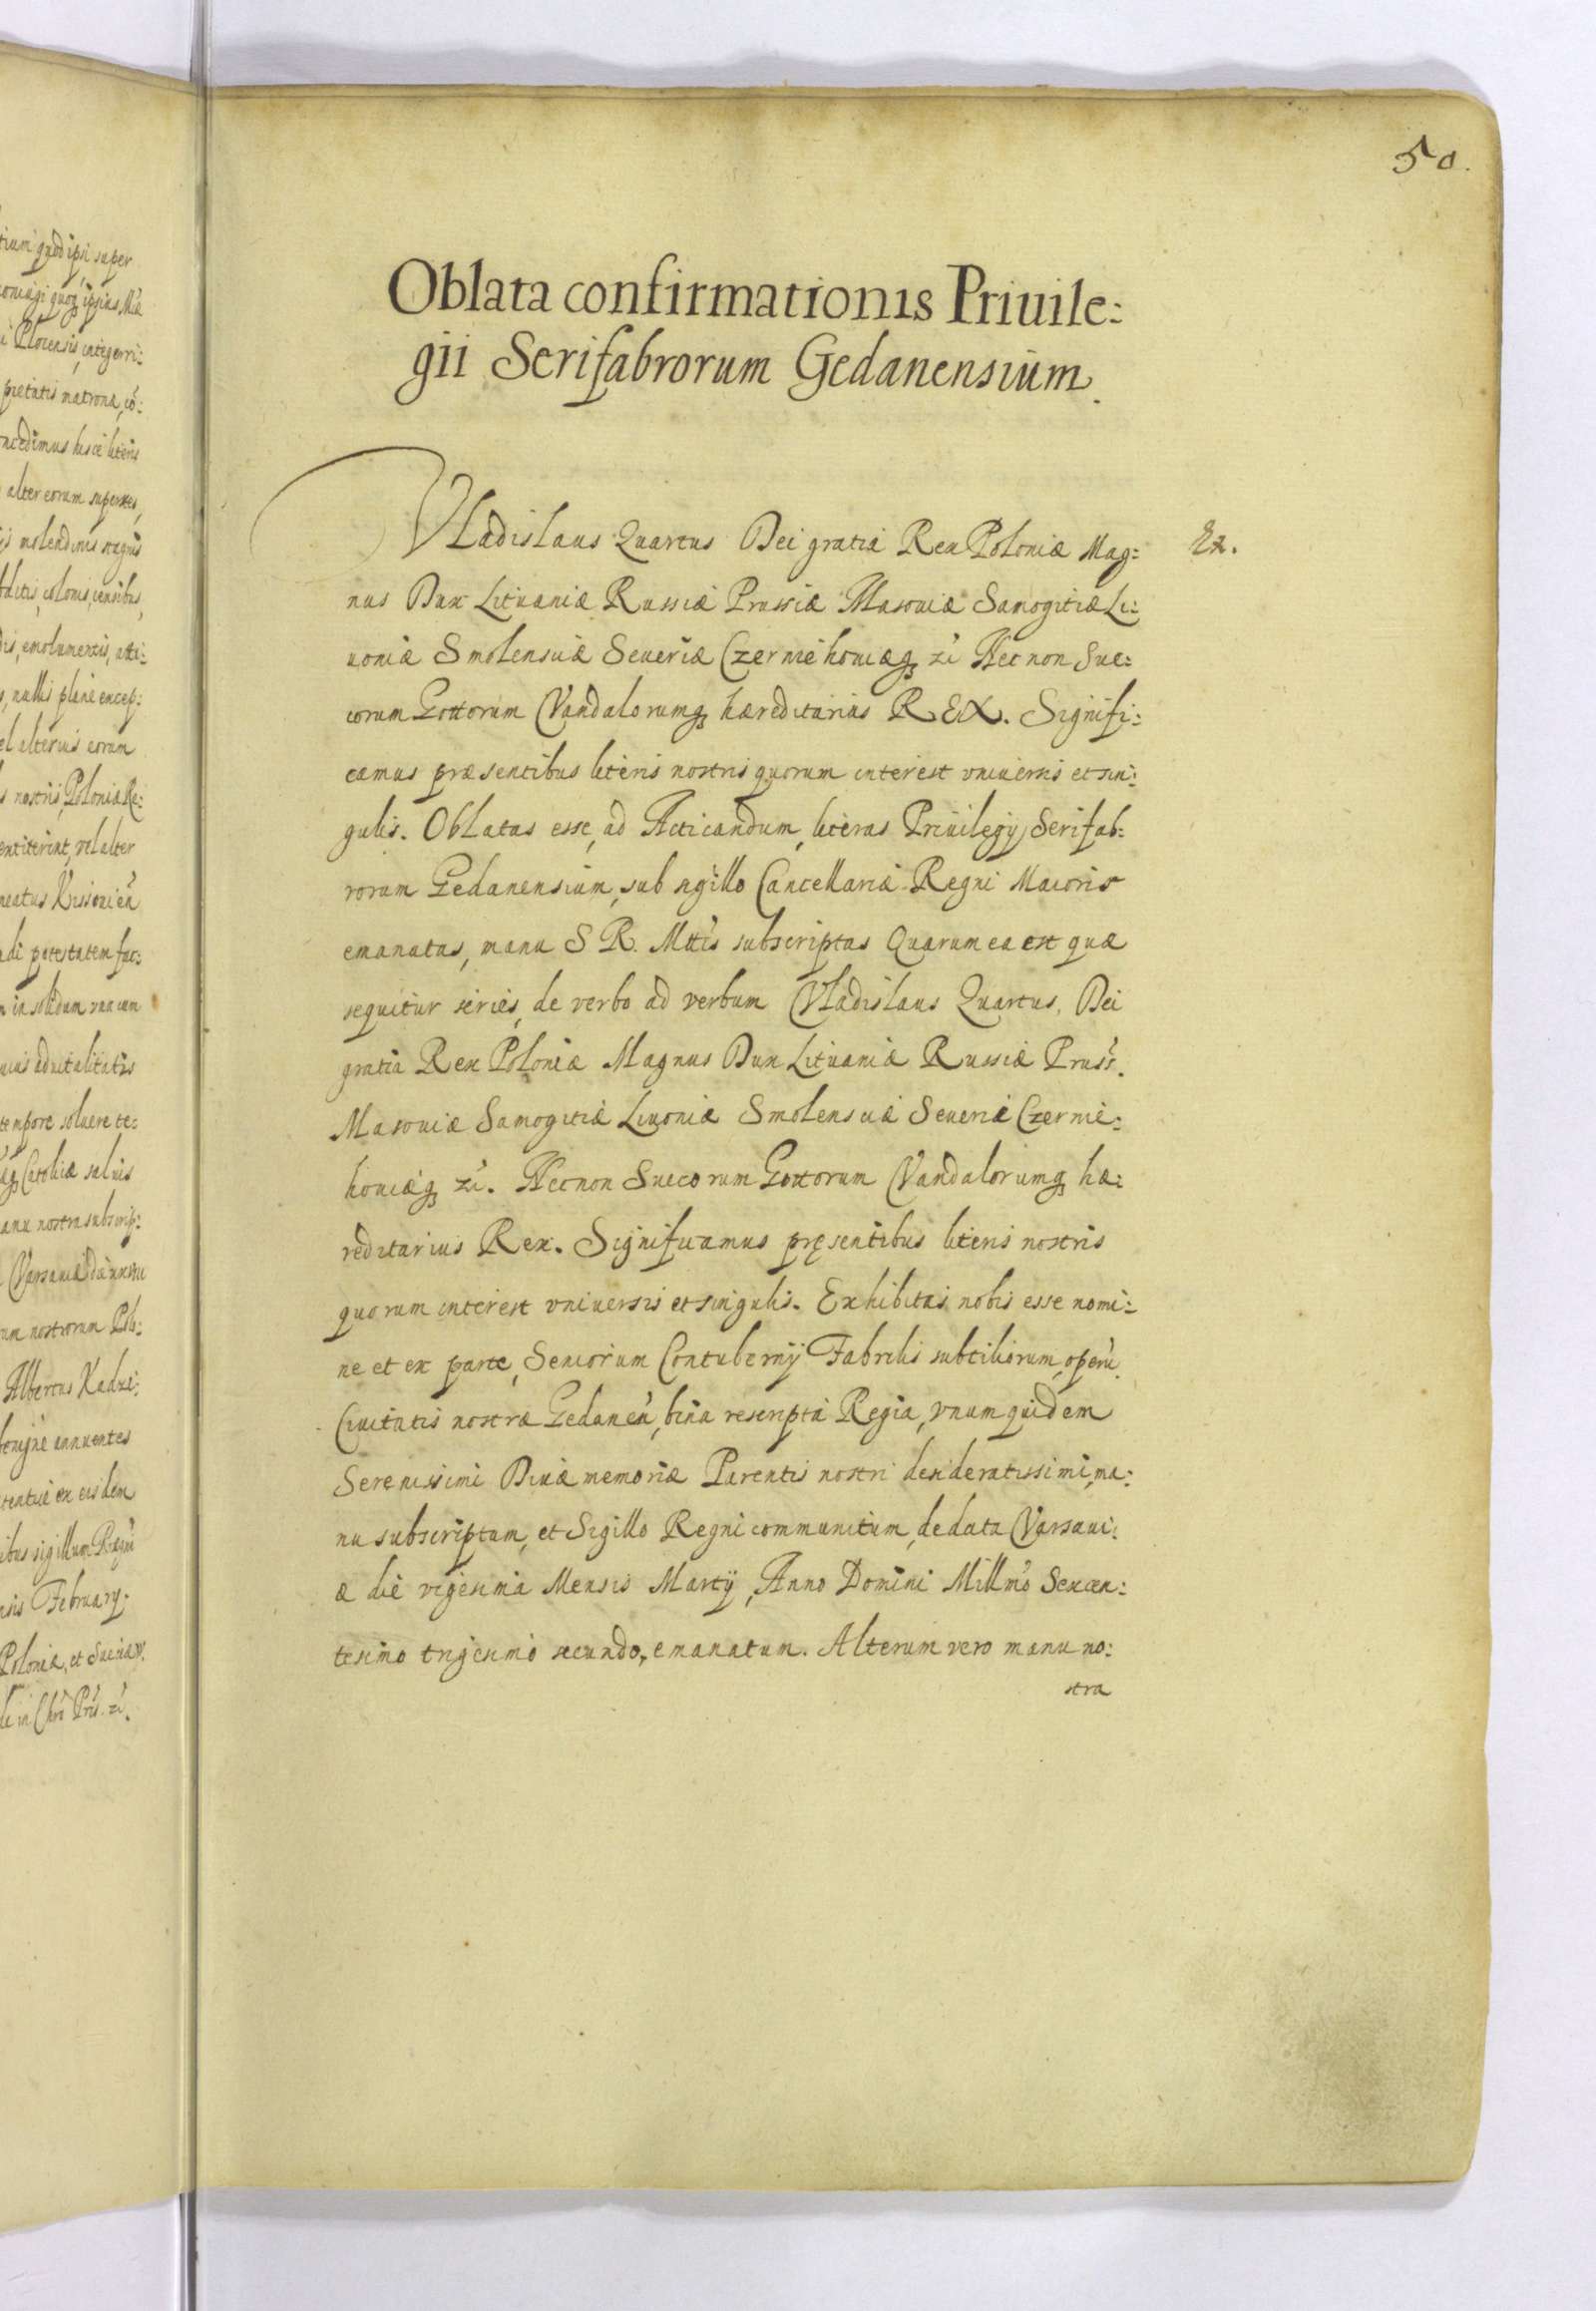 50.
Oblata confirmationis Priuile:
gii Serifabrorum Gedanensium.
Vladislaus Quartus Dei gratia Rex Poloniæ Mag:
Ex.
nus Dux Lituaniæ Russiæ Prussiæ Masouiæ Samogitiæ Li:
uoniæ Smolensciæ Seueriæ Czerniehouiæq₃ zc̃ Necnon Sue:
corum Gottorum Vandalorumq₃ hæreditarius REX. Signifi:
camus præsentibus literis nostris quorum interest vniuersis et sin:
gulis. Oblatas esse, ad Acticandum, literas Priuilegij Serifab:
rorum Gedanensium, sub sigillo Cancellariæ Regni Maioris
emanatas, manu S R. Mttis subscriptas Quarum ea est quæ
sequitur series, de verbo ad verbum Vladislaus Quartus, Dei
gratia Rex Poloniæ Magnus Dux Lituaniæ Russiæ Pruss.
Masouiæ Samogitiæ Liuoniæ Smolensciæ Seueriæ Czernie:
houiæq₃ zc̃. Necnon Suecorum Gottorum Vandalorumq₃ hæ:
reditarius Rex. Significamus pręsentibus literis nostris
quorum interest vniuersis et singulis. Exhibitas nobis esse nomi:
ne et ex parte, Seniorum Contubernij Fabrilis subtiliorum, operũ
Ciuitatis nostræ Gedaneñ, bina rescripta Regia, vnum quidem
Serenissimi Diuæ memoriæ Parentis nostri desideratissimi, ma:
nu subscriptum, et Sigillo Regni communitum, de data Varsaui:
æ die vigesima Mensis Martij, Anno Domini Millmo Sexcen:
tesimo trigesimo secundo, emanatum. Alterum vero manu no:
stra